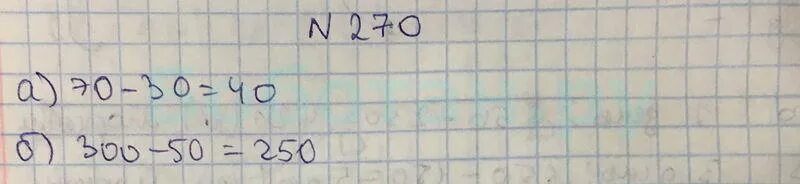 N 270
а) 70-30=40
б) 300-50=250